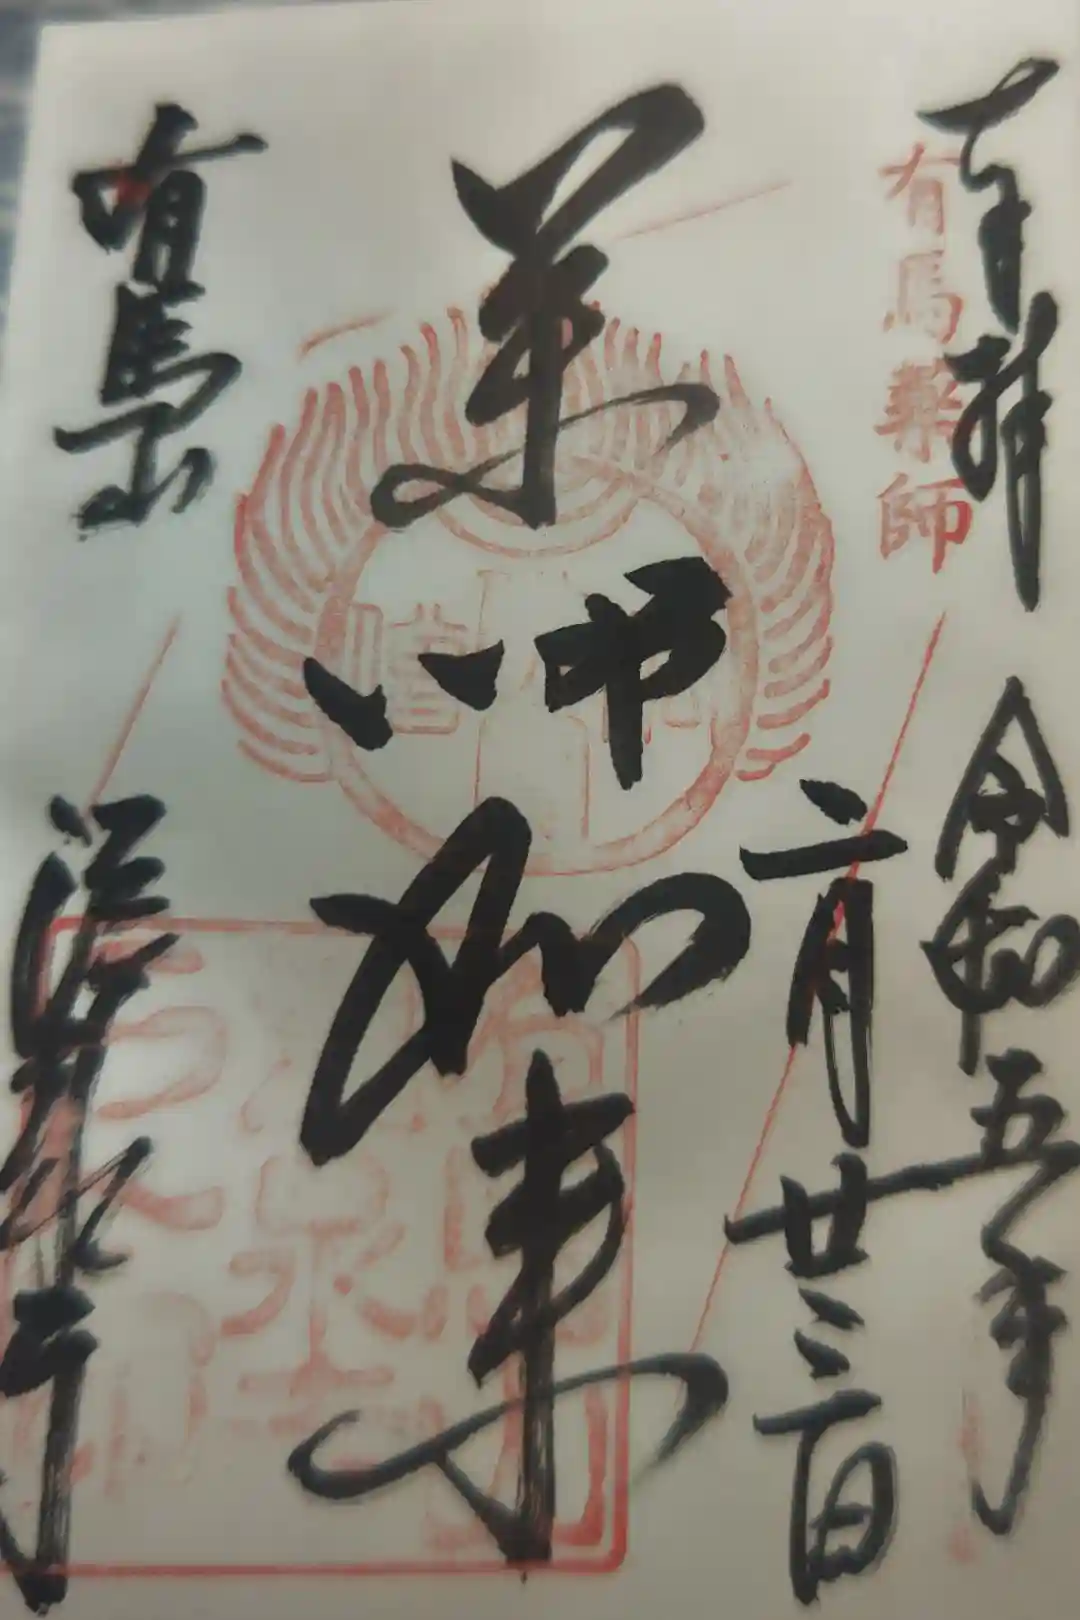 奉拝
令和五年
有馬薬師
二月廿三日
薬師如来
有馬山
温泉寺